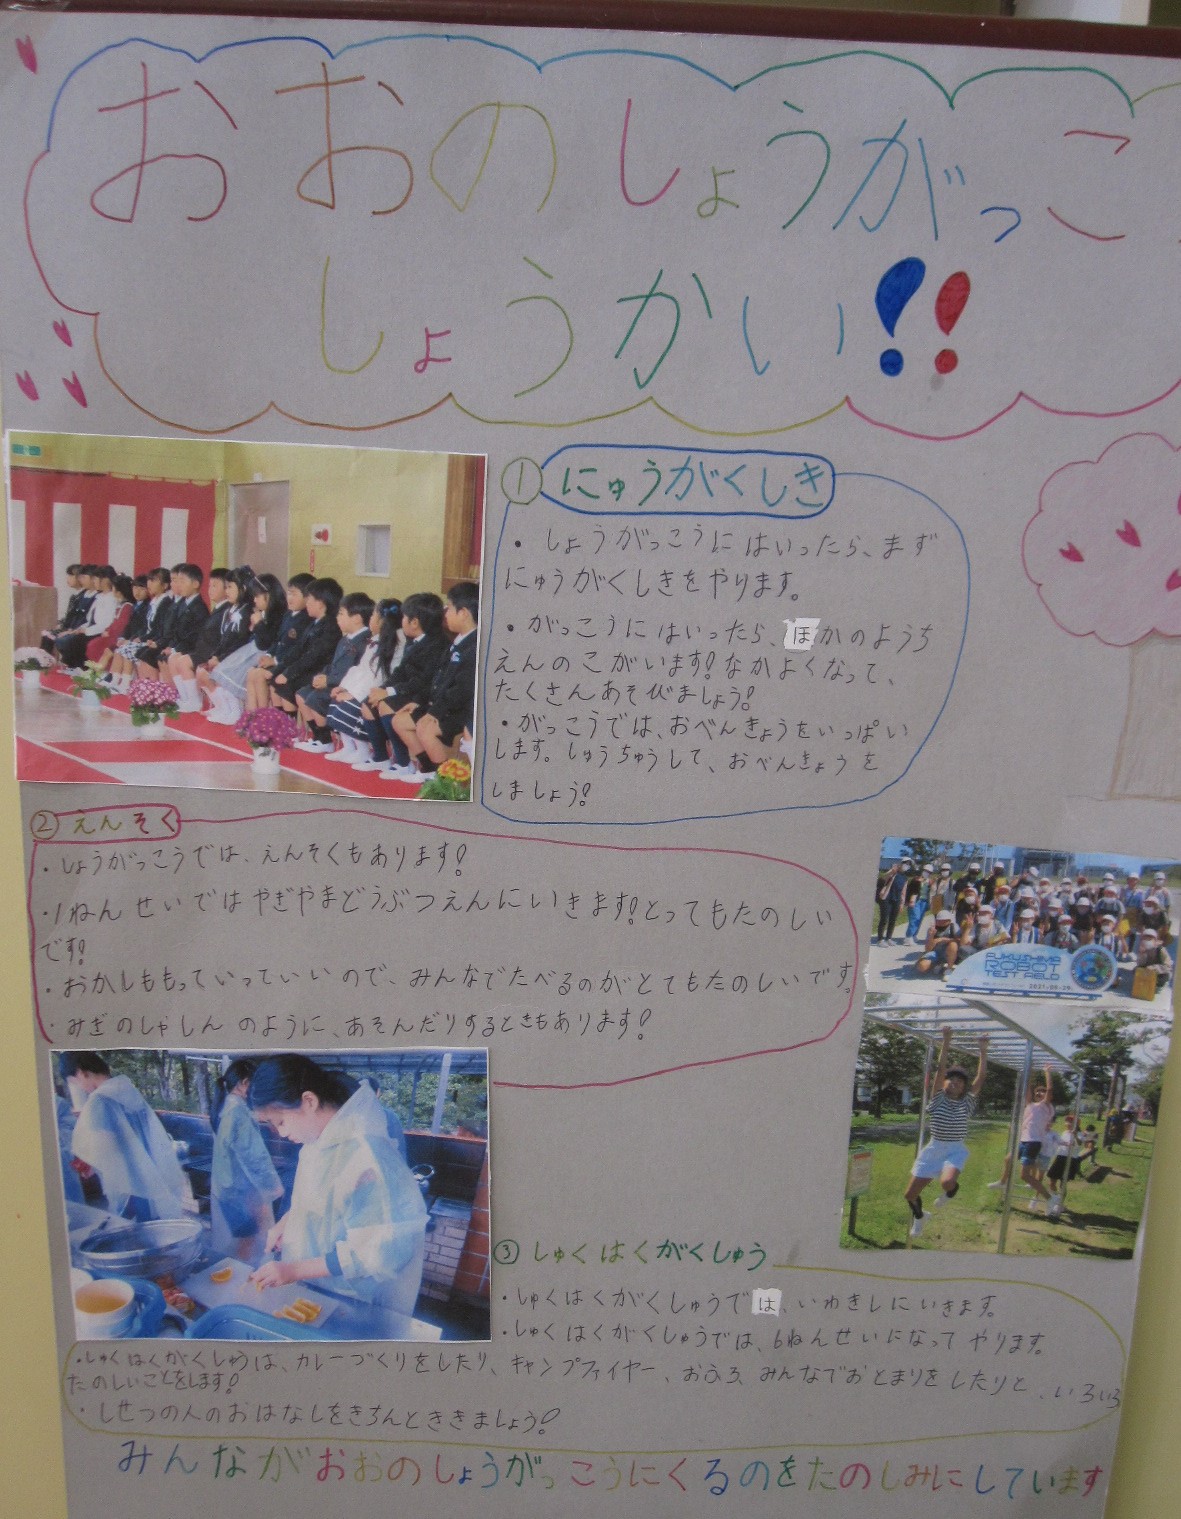 おおのしょうがっこ
しょうかい!!
① にゅうがくしき
・しょうがっこうにはいったら、まず
にゅうがくしきをやります。
・がっこうにはいったら、ほかのようち
えんのこがいます!なかよくなって、
たくさんあそびましょう!
・がっこうでは、おべんきょうをいっぱい
します。しゅうちゅうして、おべんきょうを
しましょう!
② えんそく
・しょうがっこうでは、えんそくもあります!
・1ねんせいではやぎやまどうぶつえんにいきます!とってもたのしい
です!
・おかしももっていっていいので、みんなでたべるのがとてもたのしいです。
・みぎのしゃしんのように、あそんだりするときもあります!
FUKUSHIMA
ROBOT
TEST FIELD
③ しゅくはくがくしゅう
・しゅくはくがくしゅうでは、いわきしにいきます。
・しゅくはくがくしゅうでは、6ねんせいになってやります。
・しゅくはくがくしゅうは、カレーづくりをしたり、キャンプファイヤー、おふろ、みんなでおとまりをしたりと、いろいろ
たのしいことをします!
・しせつの人のおはなしをきちんとききましょう!
みんながおおのしょうがっこうにくるのをたのしみにしています